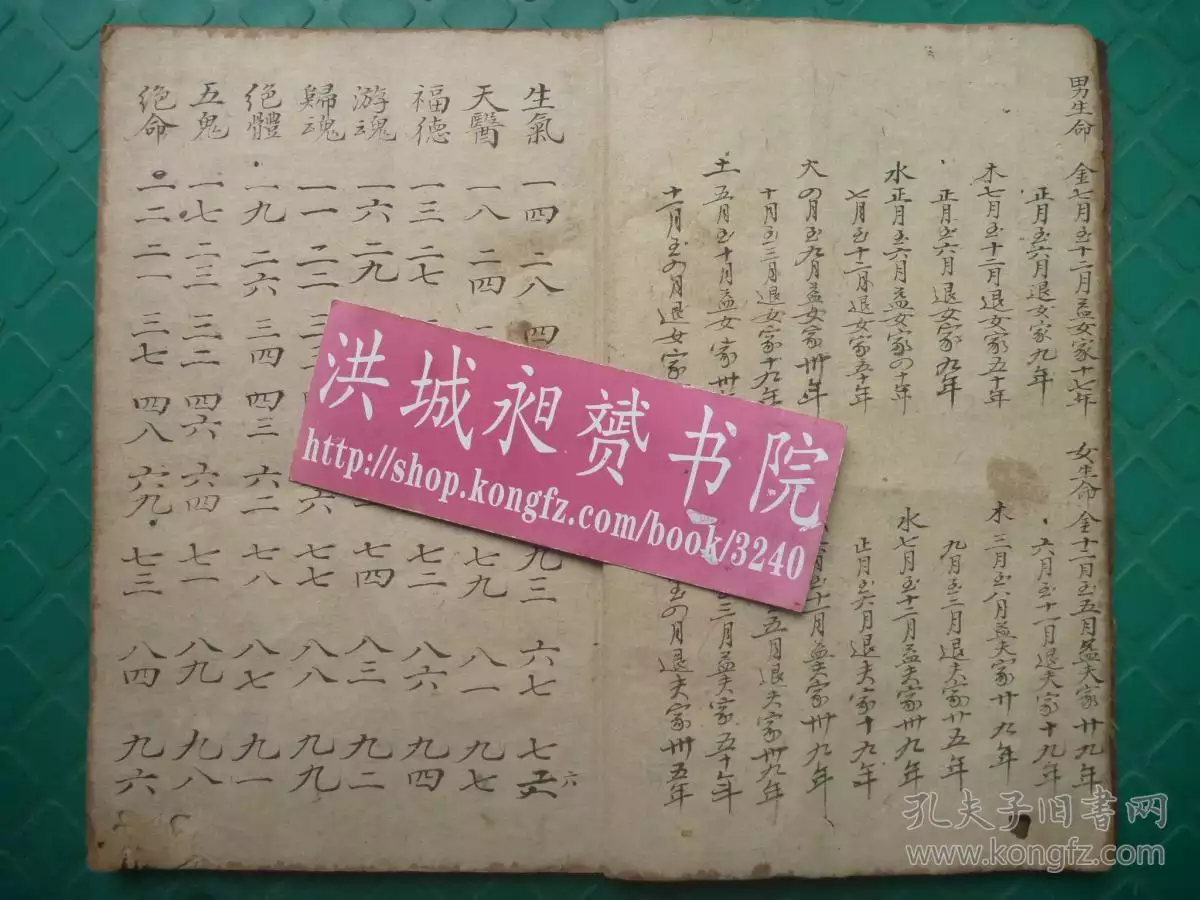 男生命 金七月至十二月益女家十七年 女生命金十二月至五月益夫家卅九年
正月至六月退女家九年 六月至十一月退夫家十九年
木七月至十二月退女家五十年 木三月至八月益夫家卅九年
正月至六月退女家九年 九月至二月退夫家廿五年
水正月至六月益女家四十年 水七月至十二月益夫家卅九年
七月至十二月退女家五十年 正月至六月退夫家十九年
火四月至九月益女家卅年 月至十一月益夫家卅九年
十月至三月退女家十九年 五月退夫家卅九年
土五月至十月益女家卅 三月益夫家五十年
十一月至四月退女家 至四月退夫家卅五年
生氣 一四 二八 四 九三 六七 七六
天醫 一八 二四 七九 八一 九七
福德 一三 二七 七二 八六 九四
游魂 一六 二九 七四 八三 九二
歸魂 一一 二二 七七 八八 九九
絕體 一九 二六 三四 四三 六二 七八 八七 九一
五鬼 一七 二三 三二 四六 六四 七一 八九 九八
絕命 一二 二一 三七 四八 六九 七三 八四 九六
洪城昶赟书院
http://shop.kongfz.com/book/3240
孔夫子旧书网
www.kongfz.com